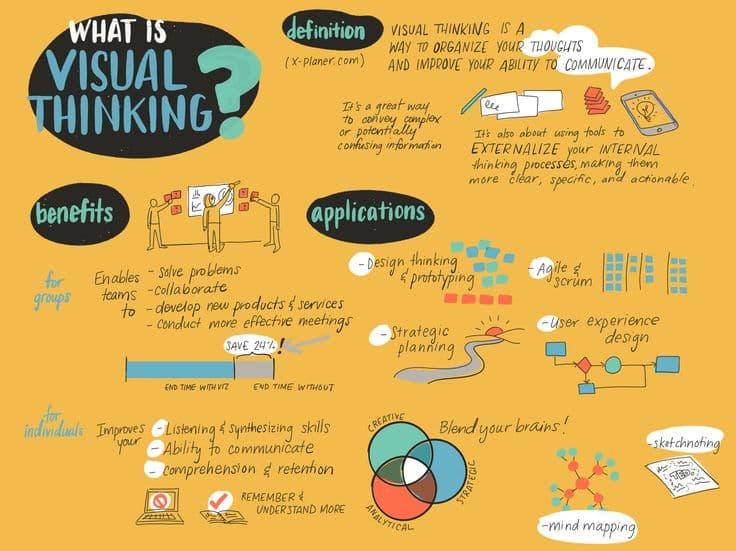 WHAT IS
VISUAL
THINKING?
definition
(X-planer.com)
VISUAL THINKING IS A
WAY TO ORGANIZE YOUR THOUGHTS
AND IMPROVE YOUR ABILITY TO COMMUNICATE.
It's a great way
to convey complex
or potentially
confusing information
It's also about using tools to
EXTERNALIZE your INTERNAL
thinking processes, making them
more clear, specific, and actionable.
benefits
for
groups
Enables
teams
to
- Solve problems
- collaborate
- develop new products & services
- conduct more effective meetings
SAVE 24%!
END TIME WITH VIZ
END TIME WITHOUT
for
individuals
Improves
your
- Listening & synthesizing skills
- Ability to communicate
- comprehension & retention
REMEMBER &
UNDERSTAND MORE
applications
- Design thinking
& prototyping
- Agile &
scrum
- Strategic
planning
- User experience
design
Blend your brains!
CREATIVE
STRATEGIC
ANALYTICAL
- mind mapping
- sketchnoting
TED